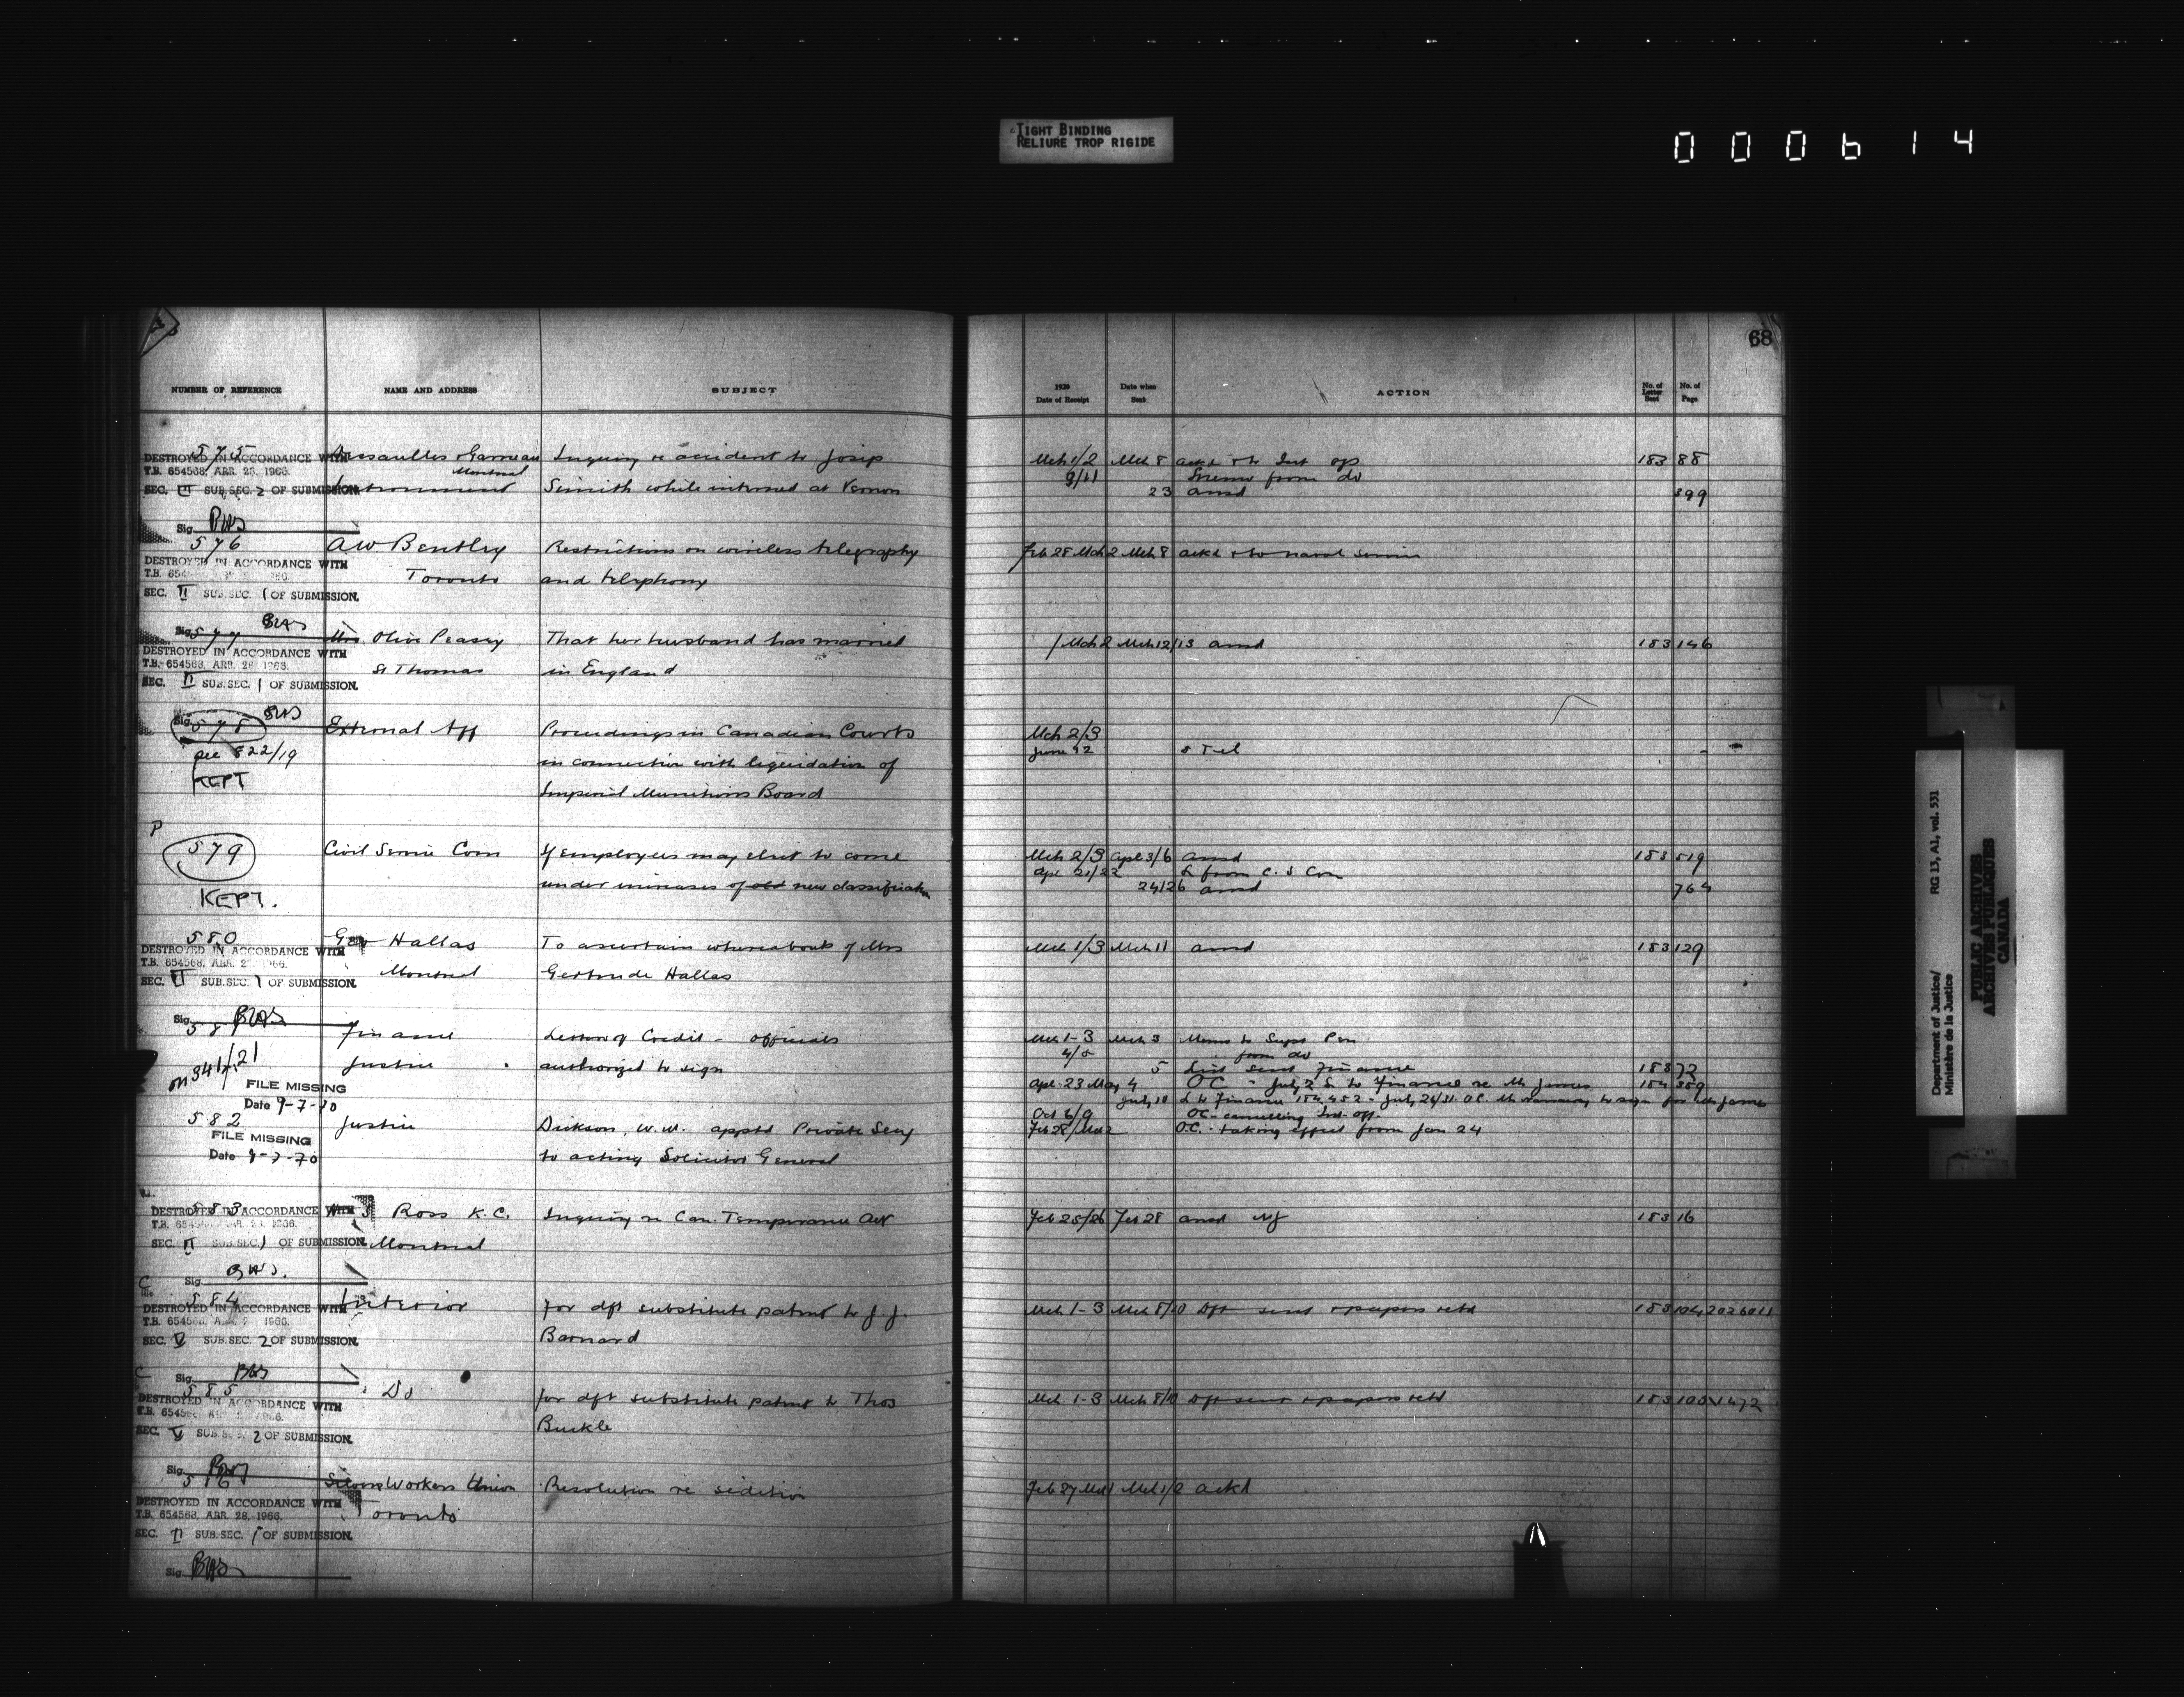 TIGHT BINDING
RELIURE TROP RIGIDE
000614
68
NUMBER OF REFERENCE NAME AND ADDRESS SUBJECT
1920 Date of Receipt Date when Sent ACTION No. of Letter Sent No. of Page
575 Dessaulles & Garneau Inquiry re accident to Josip Mch 1/2 Mch 8 ackd & to Int ops 183 88
DESTROYED IN ACCORDANCE WITH
T.B. 654568, APR. 28, 1966. Montreal 9/11 Memo from do
SEC. II SUB.SEC. 2 OF SUBMISSION. Simith while interned at Vernon 23 ansd 399
Sig. BWS
576 A W Bentley Restrictions on wireless telegraphy Feb 28 Mch 2 Mch 8 ackd & to naval service
DESTROYED IN ACCORDANCE WITH
Toronto and telephony
SEC. II SUB.SEC. 1 OF SUBMISSION.
Sig. BWS
577 Mrs Olive Peasey That her husband has married Mch 2 Mch 12/13 ansd 183 146
DESTROYED IN ACCORDANCE WITH
T.B. 654568, APR. 28, 1966.
St Thomas in England
SEC. II SUB.SEC. 1 OF SUBMISSION.
Sig. BWS
578 External Aff Proceedings in Canadian Courts Mch 2/3
see 822/19 June 12 Tel
in connection with liquidation of
KEPT
Imperial Munitions Board
P
579 Civil Service Com If employees may elect to come Mch 2/3 Apl 3/6 ansd 183 519
Apl 21/22 L from C. S Com
under increases of old new classification 24/26 ansd 764
KEPT.
580 Geo Hallas To ascertain whereabouts of Mrs Mch 1/3 Mch 11 ansd 183 129
DESTROYED IN ACCORDANCE WITH
T.B. 654568, APR. 28, 1966.
Montreal Gertrude Hallas
SEC. II SUB.SEC. 1 OF SUBMISSION.
Sig. BWS
581 Finance Letter of Credit - officials Mch 1-3 Mch 3 Memo to Supt Pen
4/5 " from do
on 341/21 Justice authorized to sign 5 List sent Finance 183 72
FILE MISSING Apl 23 May 4 O C " July 2 L to Finance re Mr James 184 389
Date 9-7-70 July 10 L to Finance 184 452 - July 26/31 O.C. to sign for Mr James
Oct 6/9 OC - cancelling Int. off.
582 Justice Dickson, W. M. apptd Private Secy Feb 28/Mch 2 O.C. - taking effect from Jan 24
FILE MISSING
Date 9-7-70 to acting Solicitor General
583 Ross K.C. Inquiry re Can. Temperance Act Feb 25/26 Feb 28 ansd 183 16
DESTROYED IN ACCORDANCE WITH
SEC. II SUB.SEC. 1 OF SUBMISSION. Montreal
Sig. BWS.
C
584 Interior for dft substitute patent to J. J. Mch 1-3 Mch 8/10 Dft sent & papers retd 183 104 2026011
DESTROYED IN ACCORDANCE WITH
Barnard
SEC. V SUB.SEC. 2 OF SUBMISSION.
C
Sig. BWS
585 Do for dft substitute patent to Thos Mch 1-3 Mch 8/10 Dft sent & papers retd 183 105
DESTROYED IN ACCORDANCE WITH
Buckle
SEC. V SUB.SEC. 2 OF SUBMISSION.
Sig. BWS
586 Workers Union Resolution re sedition Feb 27 Mch 1 Mch 1/2 ackd
DESTROYED IN ACCORDANCE WITH
T.B. 654568, APR. 28, 1966. Toronto
SEC. II SUB.SEC. 1 OF SUBMISSION.
Sig. BWS
Department of Justice/
Ministère de la Justice
RG 13, A1, vol. 531
PUBLIC ARCHIVES
ARCHIVES PUBLIQUES
CANADA